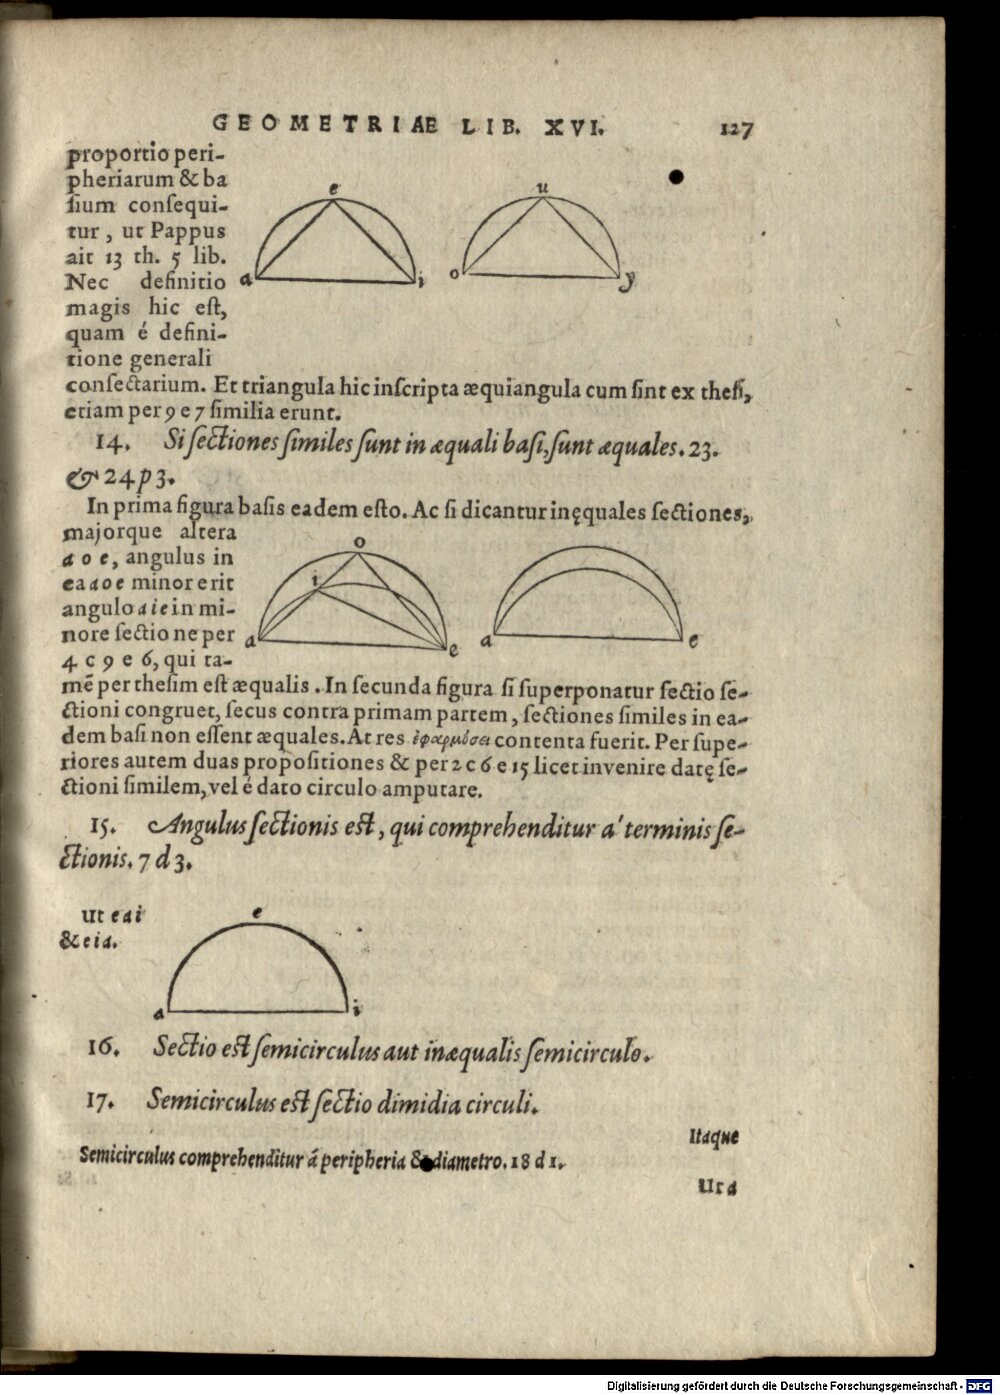 GEOMETRIAE LIB. XVI. 127
proportio peri-
pheriarum & ba
e u
ſium conſequi-
tur, ut Pappus
ait 13 th. 5 lib.
Nec definitio
a i o y
magis hic eſt,
quam é defini-
tione generali
conſectarium. Et triangula hic inſcripta æquiangula cum ſint ex theſi,
etiam per 9 e 7 ſimilia erunt.
14. Si ſectiones ſimiles ſunt in æquali baſi, ſunt æquales. 23.
& 24 p 3.
In prima figura baſis eadem eſto. Ac ſi dicantur inęquales ſectiones,
majorque altera
o
a o e, angulus in
ea a o e minor erit
i
angulo a i e in mi-
nore ſectione per
a e a e
4 c 9 e 6, qui ta-
mẽ per theſim eſt æqualis. In ſecunda figura ſi ſuperponatur ſectio ſe-
ctioni congruet, ſecus contra primam partem, ſectiones ſimiles in ea-
dem baſi non eſſent æquales. At res ἐφαρμόσει contenta fuerit. Per ſupe-
riores autem duas propoſitiones & per 2 c 6 e 15 licet invenire datę ſe-
ctioni ſimilem, vel é dato circulo amputare.
15. Angulus ſectionis eſt, qui comprehenditur a' terminis ſe-
ctionis. 7 d 3.
ut e a i
& e i a.
e
a i
16. Sectio eſt ſemicirculus aut inæqualis ſemicirculo.
17. Semicirculus eſt ſectio dimidia circuli.
Itaque
Semicirculus comprehenditur á peripheria & diametro. 18 d 1.
Ut a
Digitalisierung gefördert durch die Deutsche Forschungsgemeinschaft - DFG